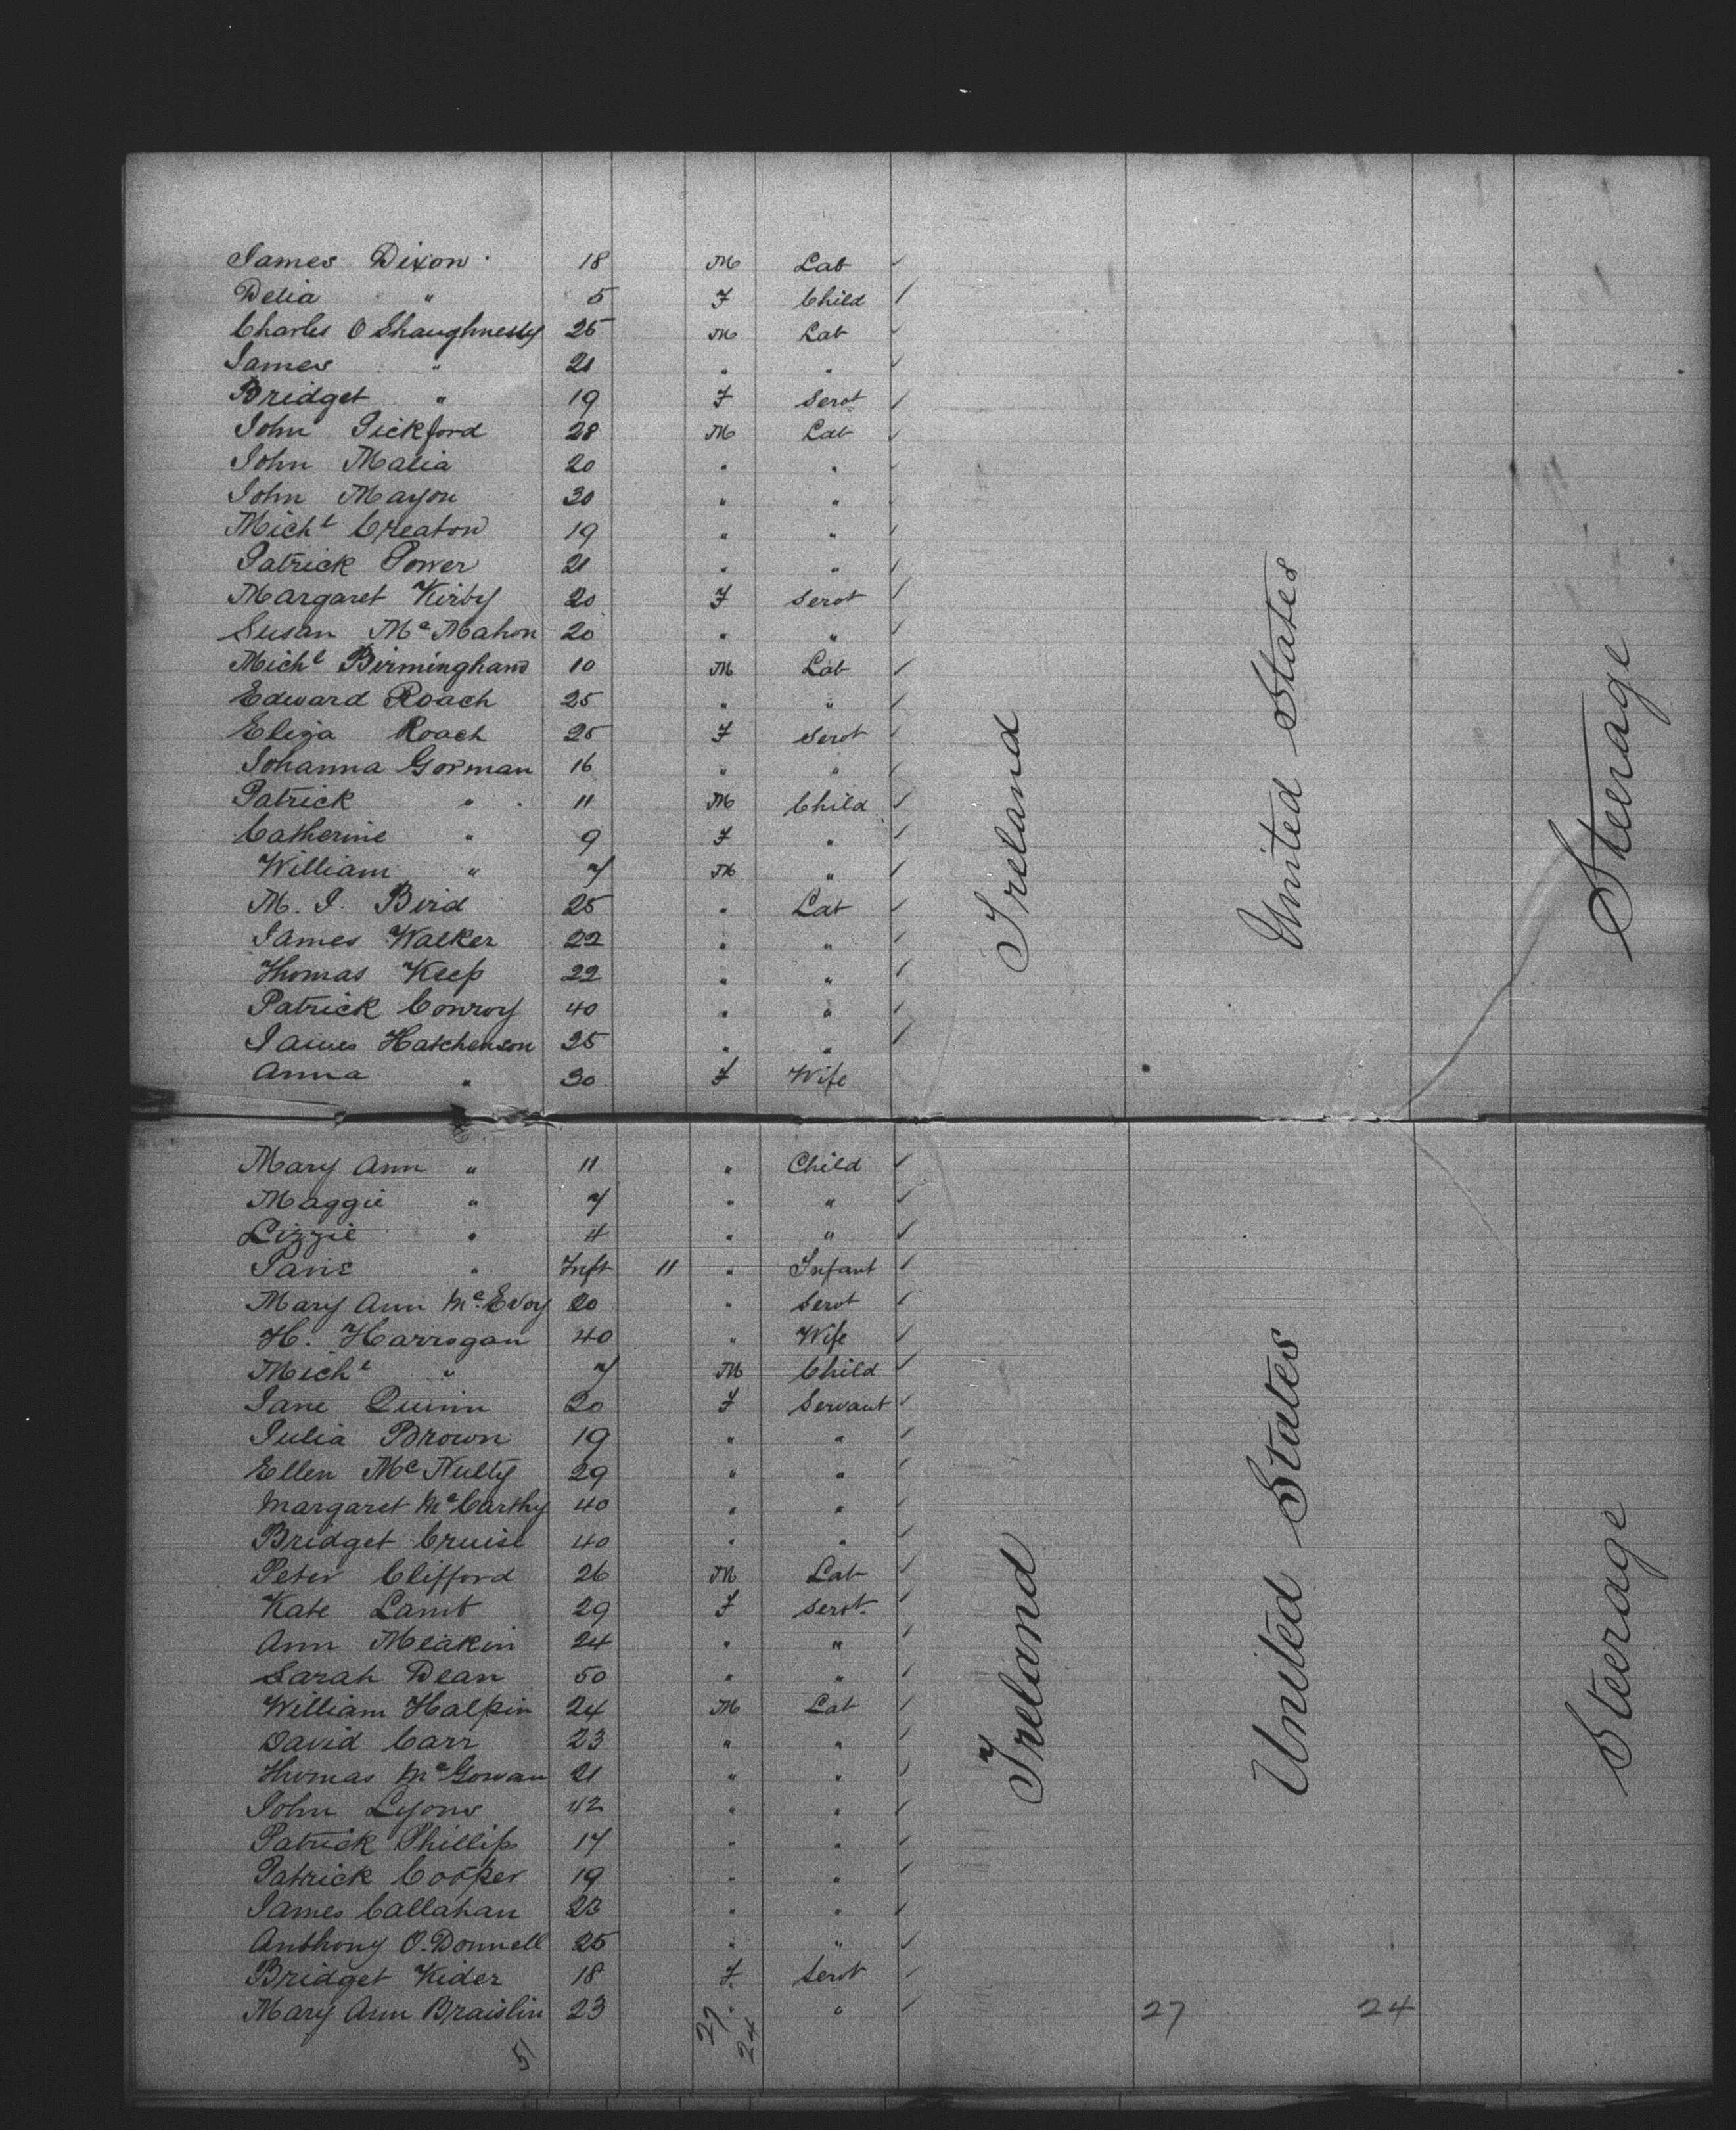 James Dixon 18 M Lab ✓
Delia " 5 F Child ✓
Charles O Shaughnessy 25 M Lab ✓
James " 21 " " ✓
Bridget " 19 F Servt ✓
John Pickford 28 M Lab ✓
John Malia 20 " " ✓
John Mayon 30 " " ✓
Michl Creaton 19 " " ✓
Patrick Power 21 " " ✓
Margaret Kirby 20 F Servt ✓
Susan McMahon 20 " " ✓
Michl Birmingham 10 M Lab ✓
Edward Roach 25 " " ✓
Eliza Roach 25 F Servt ✓
Johanna Gorman 16 " " ✓
Patrick " 11 M Child ✓
Catherine " 9 F " ✓
William " 7 M " ✓
M. J. Bird 25 " Lab ✓
James Walker 22 " " ✓
Thomas Keep 22 " " ✓
Patrick Conroy 40 " " ✓
James Hatchenson 35 " " ✓
Anna " 30 F Wife
Ireland
United States
Steerage
Mary Ann " 11 " Child ✓
Maggie " 7 " " ✓
Lizzie " 4 " " ✓
" Inft 11 " Infant ✓
Mary Ann McEvoy 20 " Servt ✓
H. Harrogan 40 " Wife ✓
Michl " 7 M Child ✓
Jane Quinn 20 F Servant ✓
Julia Brown 19 " " ✓
Ellen McNulty 29 " " ✓
Margaret McCarthy 40 " " ✓
Bridget Cruise 40 " " ✓
Peter Clifford 26 M Lab ✓
Kate Lamb 29 F Servt ✓
Ann Meakin 24 " " ✓
Sarah Dean 50 " " ✓
William Halpin 24 M Lab ✓
David Carr 23 " " ✓
Thomas McGowan 21 " " ✓
John Lyons 42 " " ✓
Patrick Phillips 17 " " ✓
Patrick Cooper 19 " " ✓
James Callahan 23 " " ✓
Anthony O.Donnell 25 " " ✓
Bridget Kider 18 F Servt ✓
Mary Ann Braislin 23 " " ✓
Ireland
United States
Steerage
27 24
27
24
5